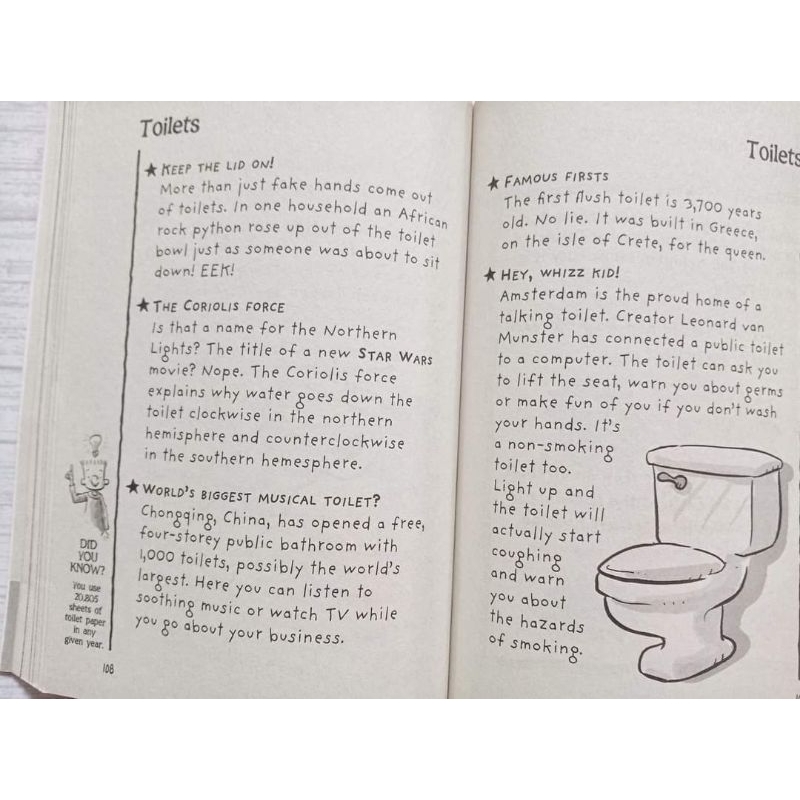 Toilets
★ KEEP THE LID ON!
More than just fake hands come out
of toilets. In one household an African
rock python rose up out of the toilet
bowl just as someone was about to sit
down! EEK!
★ THE CORIOLIS FORCE
Is that a name for the Northern
Lights? The title of a new STAR WARS
movie? Nope. The Coriolis force
explains why water goes down the
toilet clockwise in the northern
hemisphere and counterclockwise
in the southern hemesphere.
★ WORLD'S BIGGEST MUSICAL TOILET?
Chongqing, China, has opened a free,
four-storey public bathroom with
1,000 toilets, possibly the world's
largest. Here you can listen to
soothing music or watch TV while
you go about your business.
DID
YOU
KNOW?
You use
20,805
sheets of
toilet paper
in any
given year.
108
Toilets
★ FAMOUS FIRSTS
The first flush toilet is 3,700 years
old. No lie. It was built in Greece,
on the isle of Crete, for the queen.
★ HEY, WHIZZ KID!
Amsterdam is the proud home of a
talking toilet. Creator Leonard van
Munster has connected a public toilet
to a computer. The toilet can ask you
to lift the seat, warn you about germs
or make fun of you if you don't wash
your hands. It's
a non-smoking
toilet too.
Light up and
the toilet will
actually start
coughing
and warn
you about
the hazards
of smoking.